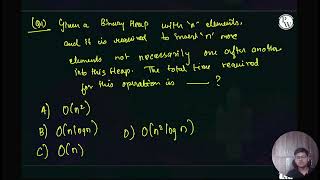 (Q1) Given a Binary Heap with "n" elements,
and it is required to insert 'n' more
elements not necessarily one after another
into this Heap. The total time required
for this operation is ___ ?
A) O(n²)
B) O(n logn)
C) O(n)
D) O(n² log n)